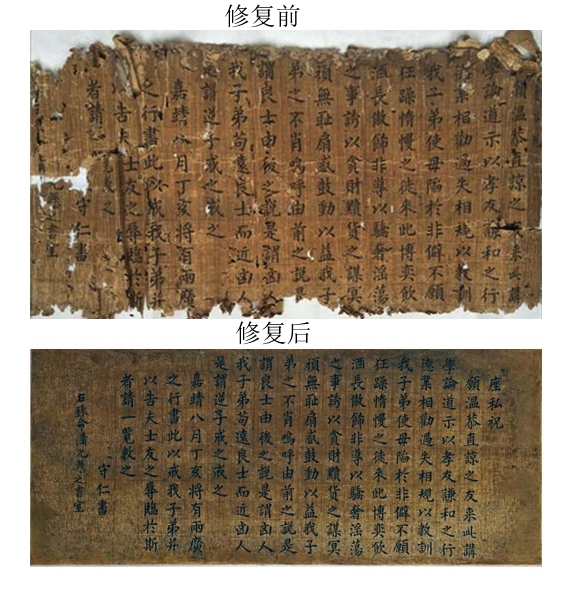 修复前
願溫恭直諒之 來此講
學論道示以孝友謙和之行
業相勸過失相規以教訓
我子弟使毋陷於非僻不願
狂躁惰慢之徒來此博奕飲
酒長傲飾非導以驕奢淫蕩
之事誘以貪財黷貨之謀冥
頑無恥扇惑鼓動以益我子
弟之不肖嗚呼由前之說是
謂良士由後之說是謂凶人
我子弟苟遠良士而近凶人
是謂逆子戒之戒之
嘉靖八月丁亥將有兩廣
之行書此以戒我子弟并
以告夫士友之辱臨於斯
者請一覽教之
守仁書
書室
修复后
座私祝
願溫恭直諒之友來此講
學論道示以孝友謙和之行
德業相勸過失相規以教訓
我子弟使毋陷於非僻不願
狂躁惰慢之徒來此博奕飲
酒長傲飾非導以驕奢淫蕩
之事誘以貪財黷貨之謀冥
頑無恥扇惑鼓動以益我子
弟之不肖嗚呼由前之說是
謂良士由後之說是謂凶人
我子弟苟遠良士而近凶人
是謂逆子戒之戒之
嘉靖八月丁亥將有兩廣
之行書此以戒我子弟并
以告夫士友之辱臨於斯
者請一覽教之
守仁書
之書室